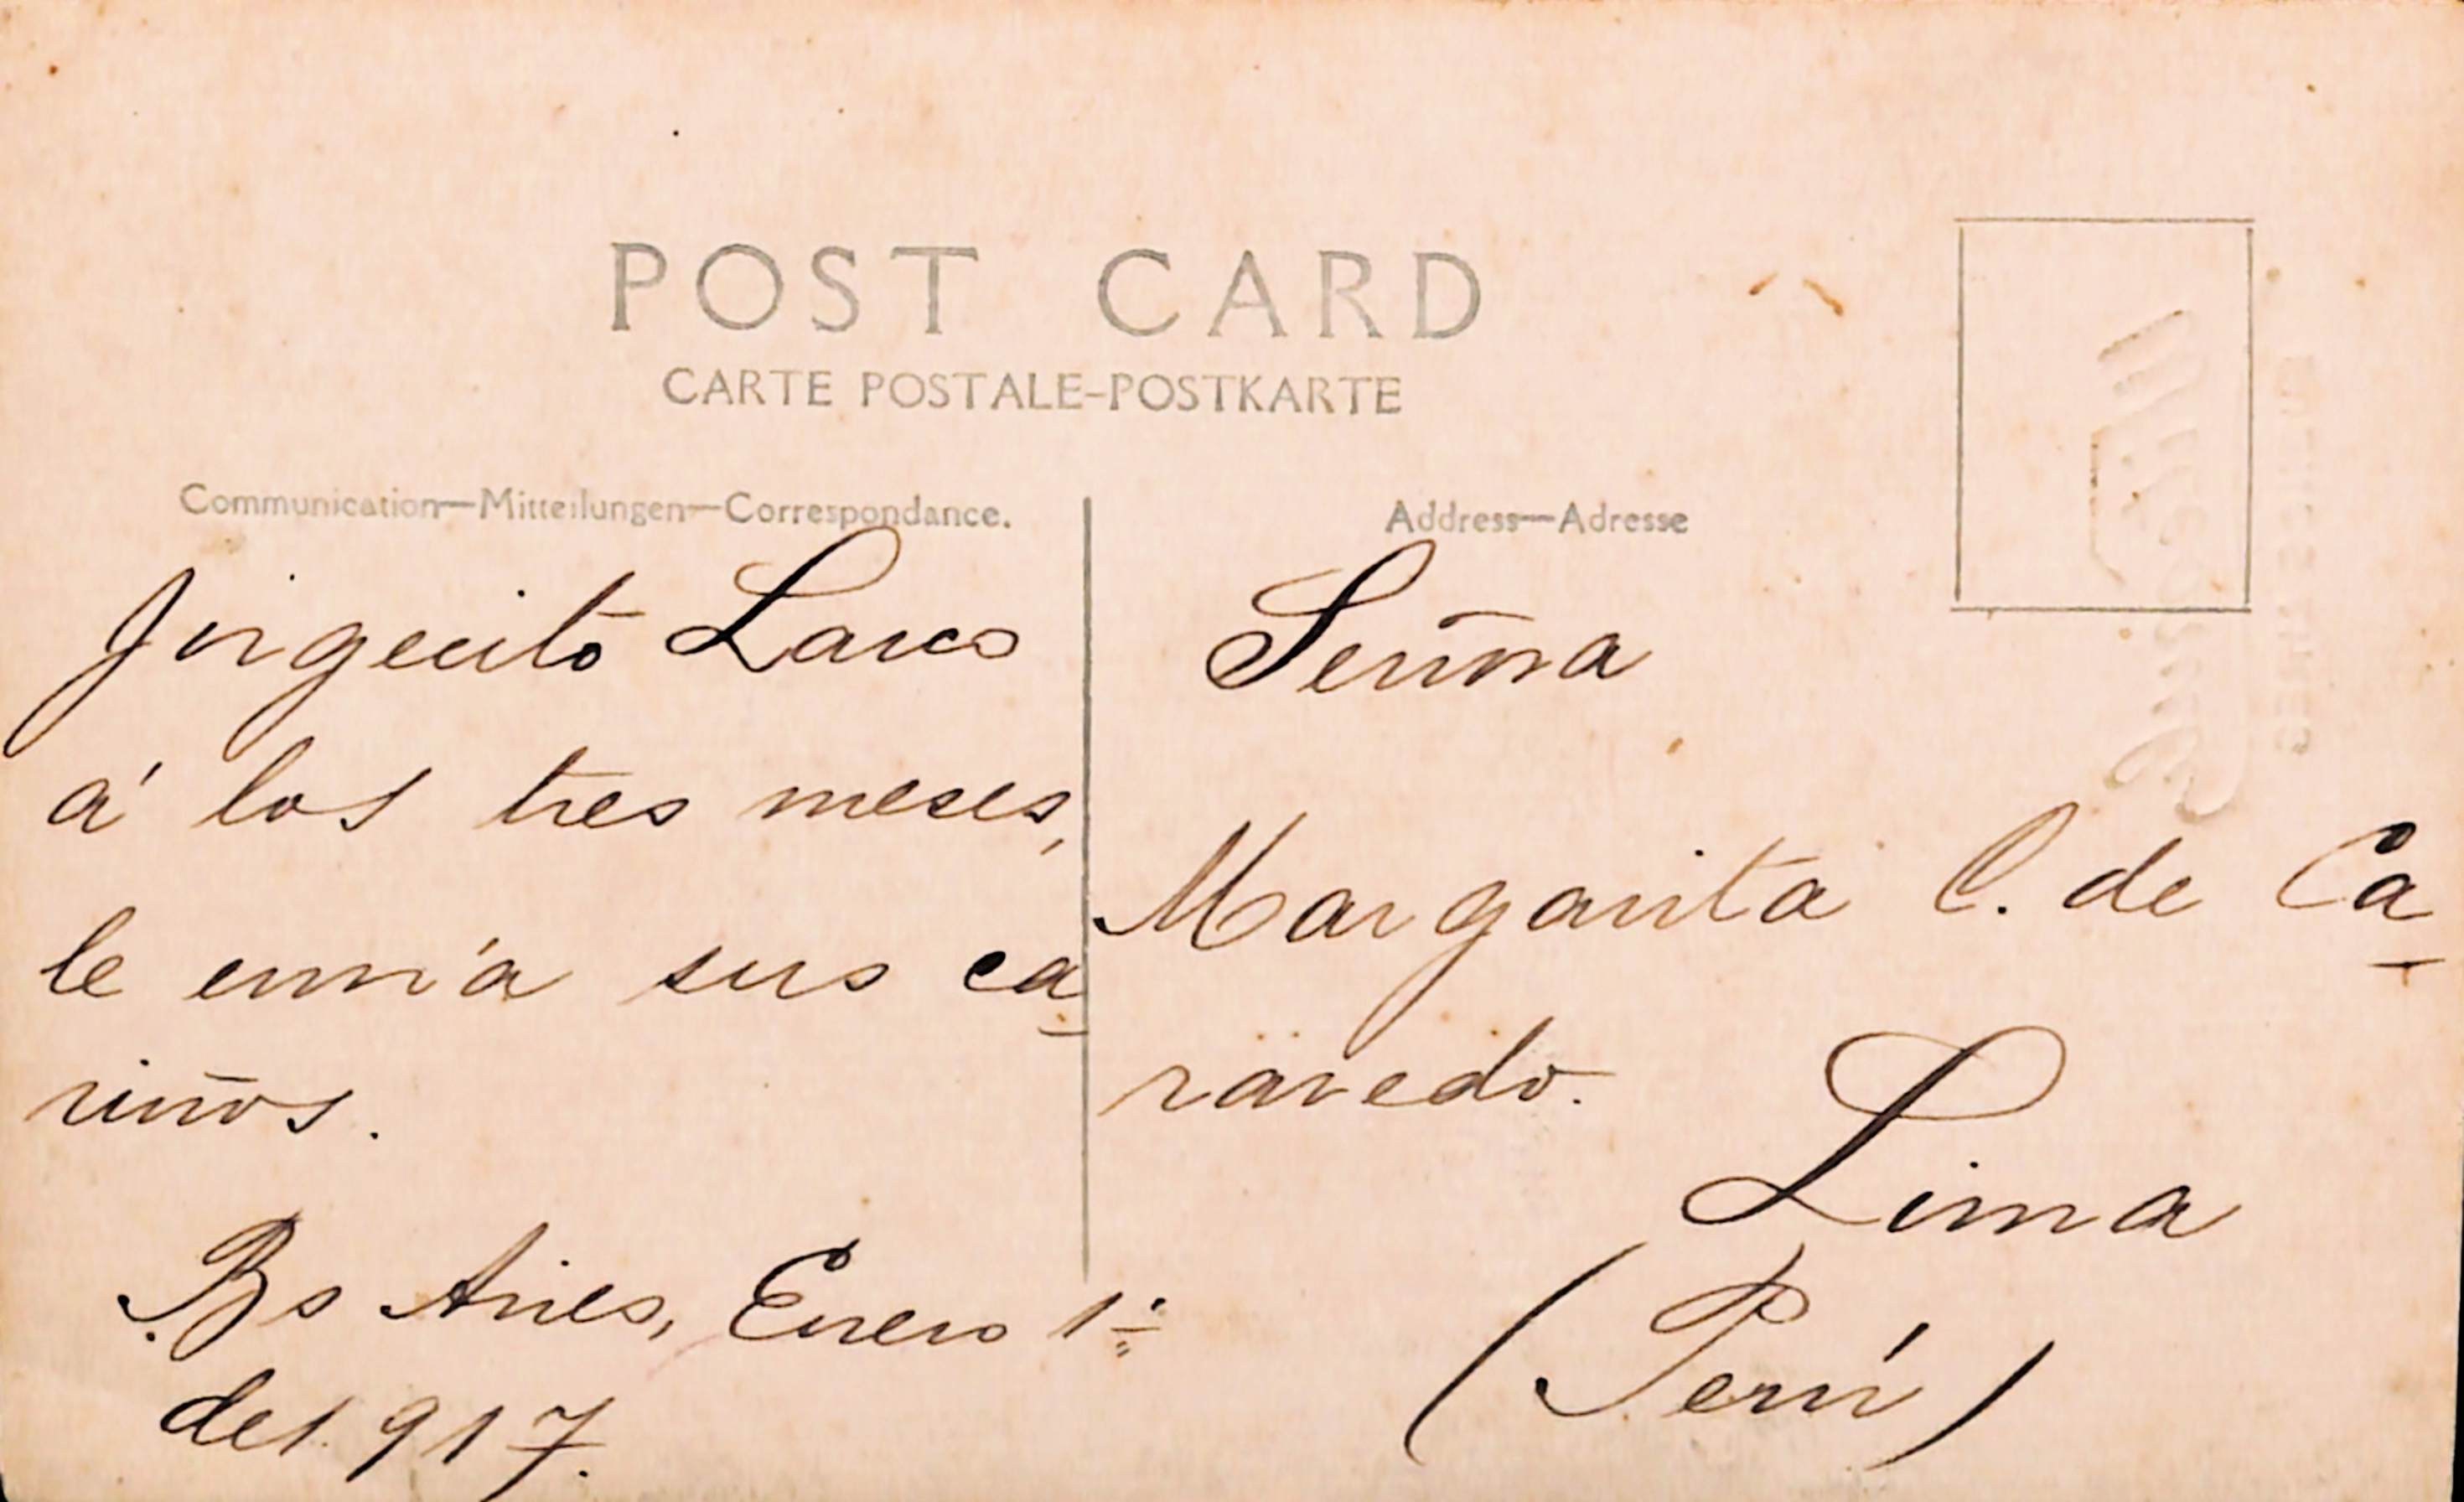 POST CARD
CARTE POSTALE-POSTKARTE
Communication—Mitteilungen—Correspondance.
Jorgecito Larco
á los tres meses,
le envía sus ca-
riños.
Bs Aires, Enero 1º
de 1917.
Address—Adresse
Señora
Margarita C. de Ca-
ravedo.
Lima
(Perú)